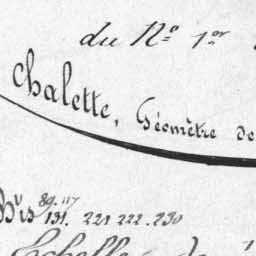 du N° 1er
Chalette, Géomètre de
89. 117
Nis 131. 221 222. 230
Echelle de